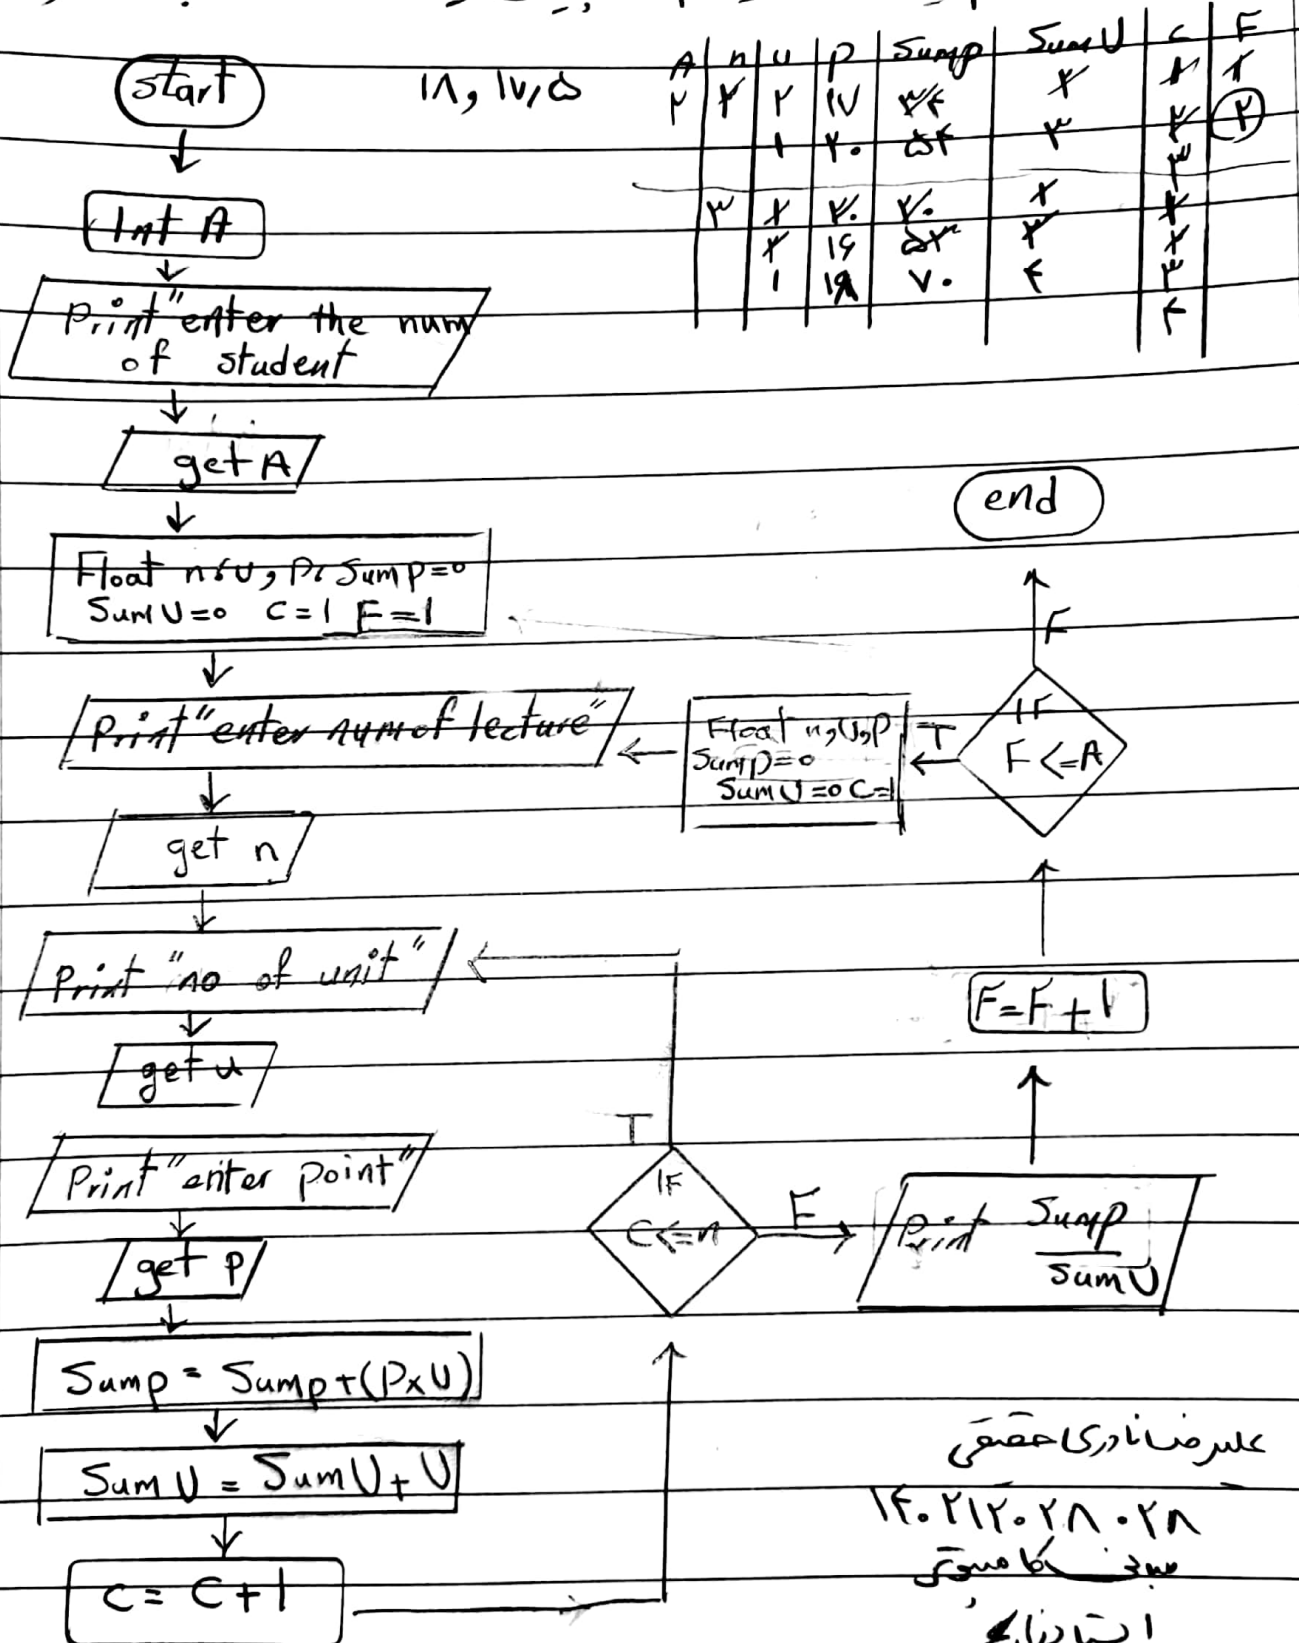 start
۱۸, ۱۷,۵
A n u p Sump SumU C F
۲ ۲ ۲ ۱۷ ۳۴ ۲ ۱ ۱
۱ ۲۰ ۵۴ ۳ ۲ ۲
۳
۳ ۲۰ ۲
۱۶ ۳
۱ ۱۸ ۷۰ ۴ ۳
۴
Int A
Print "enter the num
of student
get A
Float n, u, P, Sump=0
SumU=0 C=1 F=1
Print "enter num of lecture"
get n
Print "no of unit"
get u
Print "enter point"
get p
Sump = Sump+(P×U)
SumU = SumU+U
C = C+1
IF
C<=n
T
F
Print Sump
SumU
F=F+1
IF
F<=A
T
F
Float n,U,P
Sump=0
SumU=0 C=1
end
علیرضا نادری حقیقی
۱۴۰۲۱۲۰۲۸۰۲۸